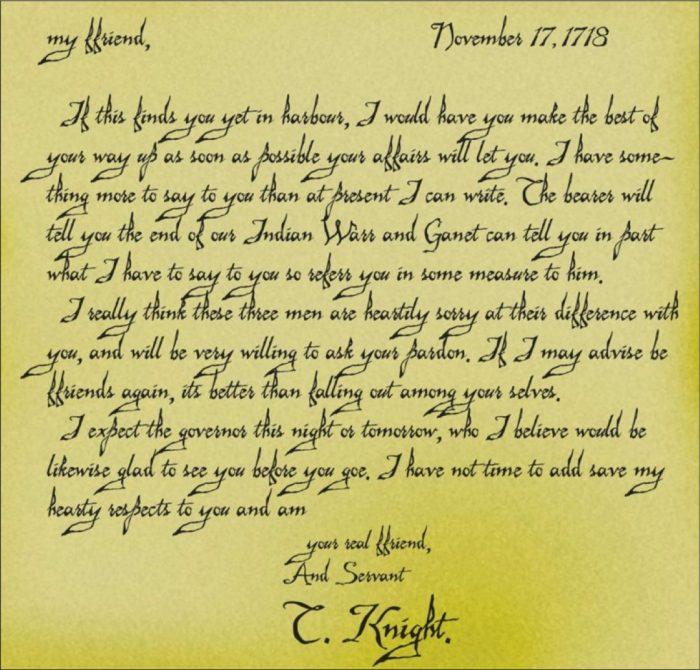 my ffriend, November 17, 1718
If this finds you yet in harbour, I would have you make the best of
your way up as soon as possible your affairs will let you. I have some-
thing more to say to you than at present I can write. The bearer will
tell you the end of our Indian Warr and Ganet can tell you in part
what I have to say to you so referr you in some measure to him.
I really think these three men are heartily sorry at their difference with
you, and will be very willing to ask your pardon. If I may advise be
ffriends again, its better than falling out among your selves.
I expect the governor this night or tomorrow, who I believe would be
likewise glad to see you before you goe. I have not time to add save my
hearty respects to you and am
your real ffriend,
And Servant
T. Knight.